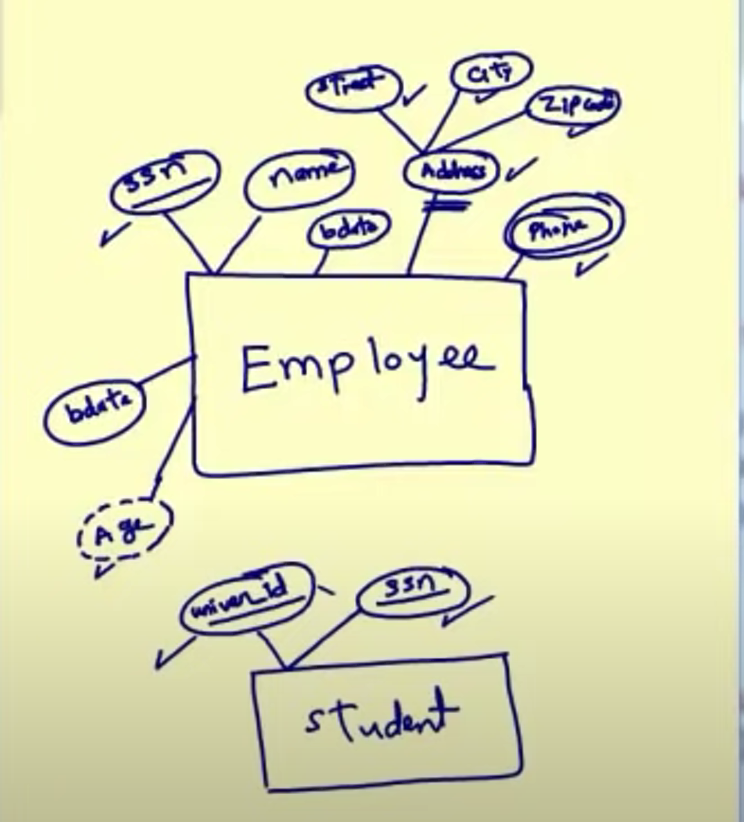 street
city
Zip code
ssn
name
Address
bdate
Phone
Employee
bdate
Age
univer_id
ssn
student